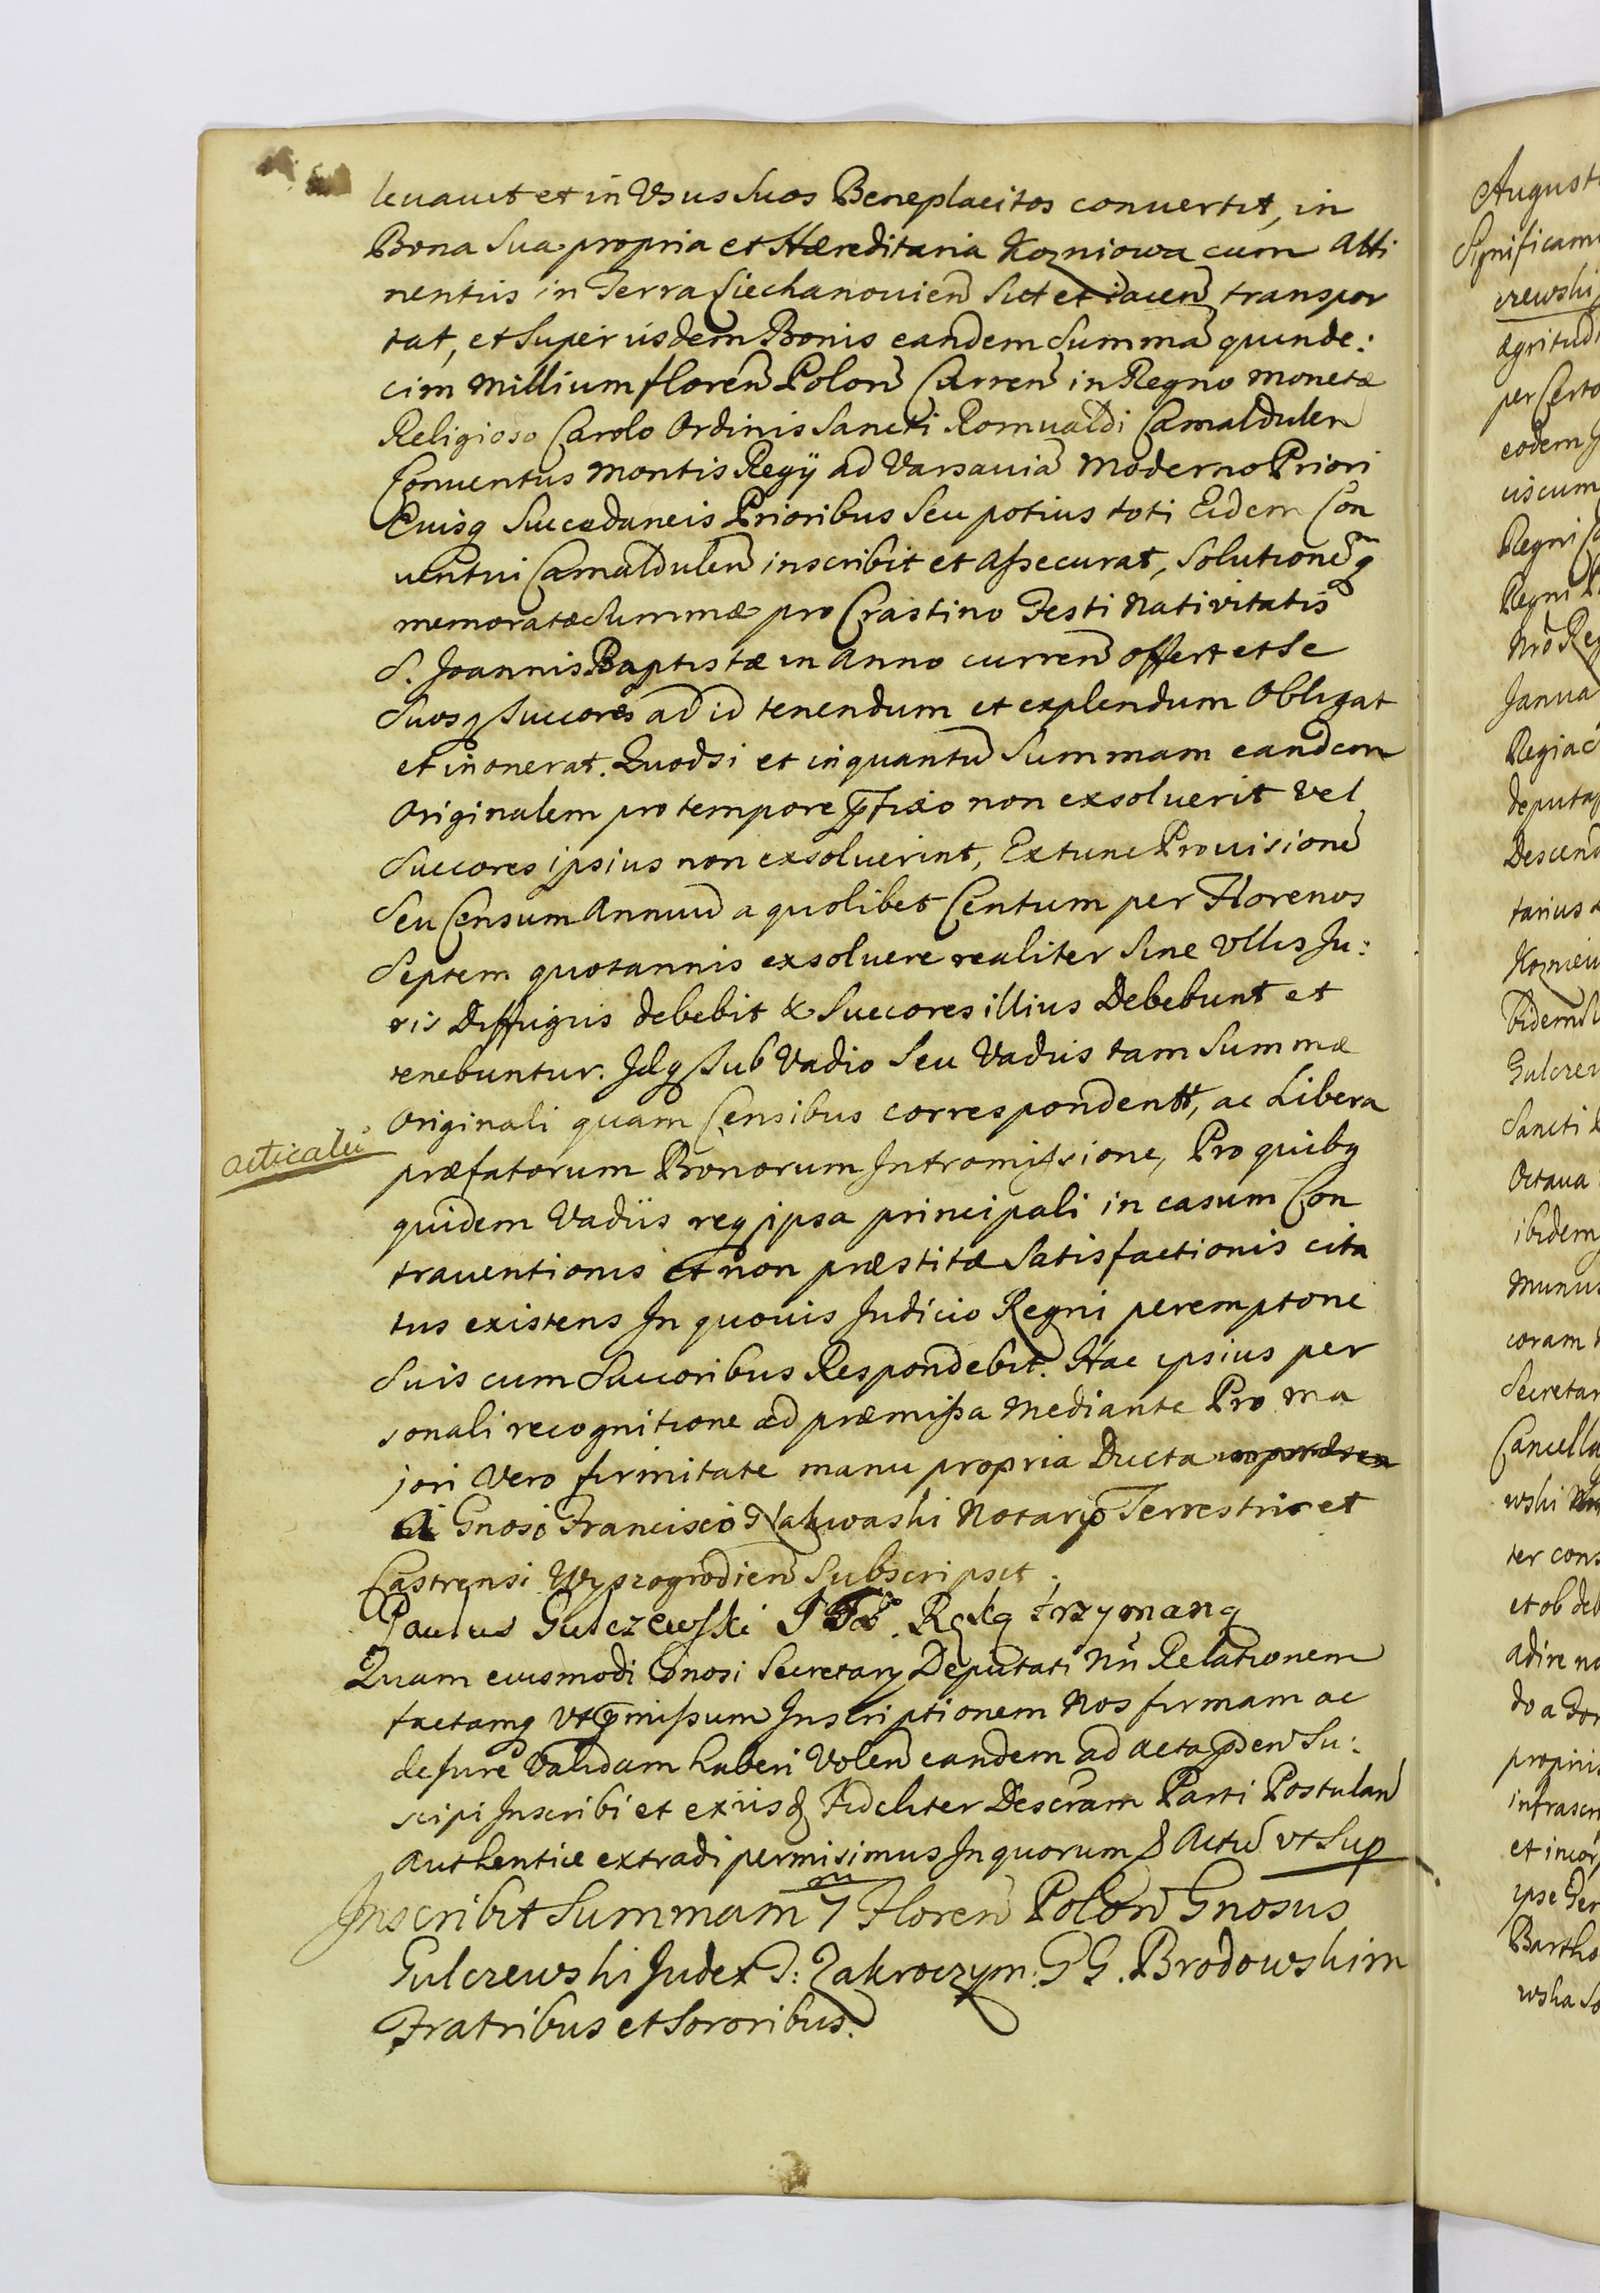 levavit et in Usus suos Beneplacitos convertit, in
Bona sua propria et Hæreditaria Kozniowa cum Atti
nentiis in Terra Ciechanovien̄ Sitt et iacen̄ transpor
tat, et super iisdem Bonis eandem Summā quinde:
cim Millium floren̄ Polon̄ Curren̄ in Regno Monetæ
Religioso Carolo Ordinis Sancti Romualdi Camaldulen
Conventus Montis Regÿ ad Varsaviā Moderno Priori
Euisq Succedaneis Prioribus Seu potius toti Eidem Con
ventui Camaldulen̄ inscribit et Assecurat, Solutionemq
memoratæ Summæ pro Crastino Festi Nativitatis
S. Joannis Baptistæ in Anno curren̄ offert et Se
Suosq Succores ad id tenendum et explendum Obligat
et inonerat. Quodsi et inquantū Summam eandem
Originalem pro tempore p̄fixo non exsoluerit vel
Succores ipsius non exsoluerint, Extunc Provisionē
Seu Censum Annuū a quolibet Centum per Florenos
Septem quotannis exsoluere realiter Sine Ullis Ju:
ris Diffugiis debebit & Succores illius Debebunt et
tenebuntur. Idq sub Vadio Seu Vadiis tam Summæ
Originali quam Censibus correspondentt, ac Libera
acticatū
præfatorum Bonorum Intromissione, Pro quibq
quidem Vadiis req ipsa principali in casum Con
traventionis et non præstitæ Satisfactionis cita
tus existens In quovis Judicio Regni peremptorie
Suis cum Succoribus Respondebit. Hac ipsius per
sonali recognitione ad præmissa Mediante Pro ma
jori Vero firmitate manu propria Ducta
Gnoso Francisco Nakwaski Notario Terrestri et
Castrensi Wyszogrodien̄ Subscripsit.
Paulus Gulczewski Ręką trzymaną
Quam eiusmodi Gnosi Secretarÿ Deputati Nri Relationem
factamq Ut p̄missum Inscriptionem Nos firmam ac
de Jure Validam haberi Volen̄ eandem ad Acta p̄den̄ Su:
scipi Inscribi et ex iisd Fideliter Descram Parti Postulan̄
Authentice extradi permisimus In quorum & Actū ut Sup
Inscribit Summam 7 m Floren̄ Polon̄ Gnosus
Gulczewski Judex T: Zakroczym: GG. Brodowskim
Fratribus et Sororibus.
Augusti
Significam
czewski
ægritudi
per Certo
eodem
Regni
Regni
Janua
deputa
Descend
tarius
Sancti
Octava
ibidem
Munus
coram
Secretar
Cancella
wski
ter cons
et ob deb
adire no
propriis
infrascri
ipse Ger
Bartho
wska So